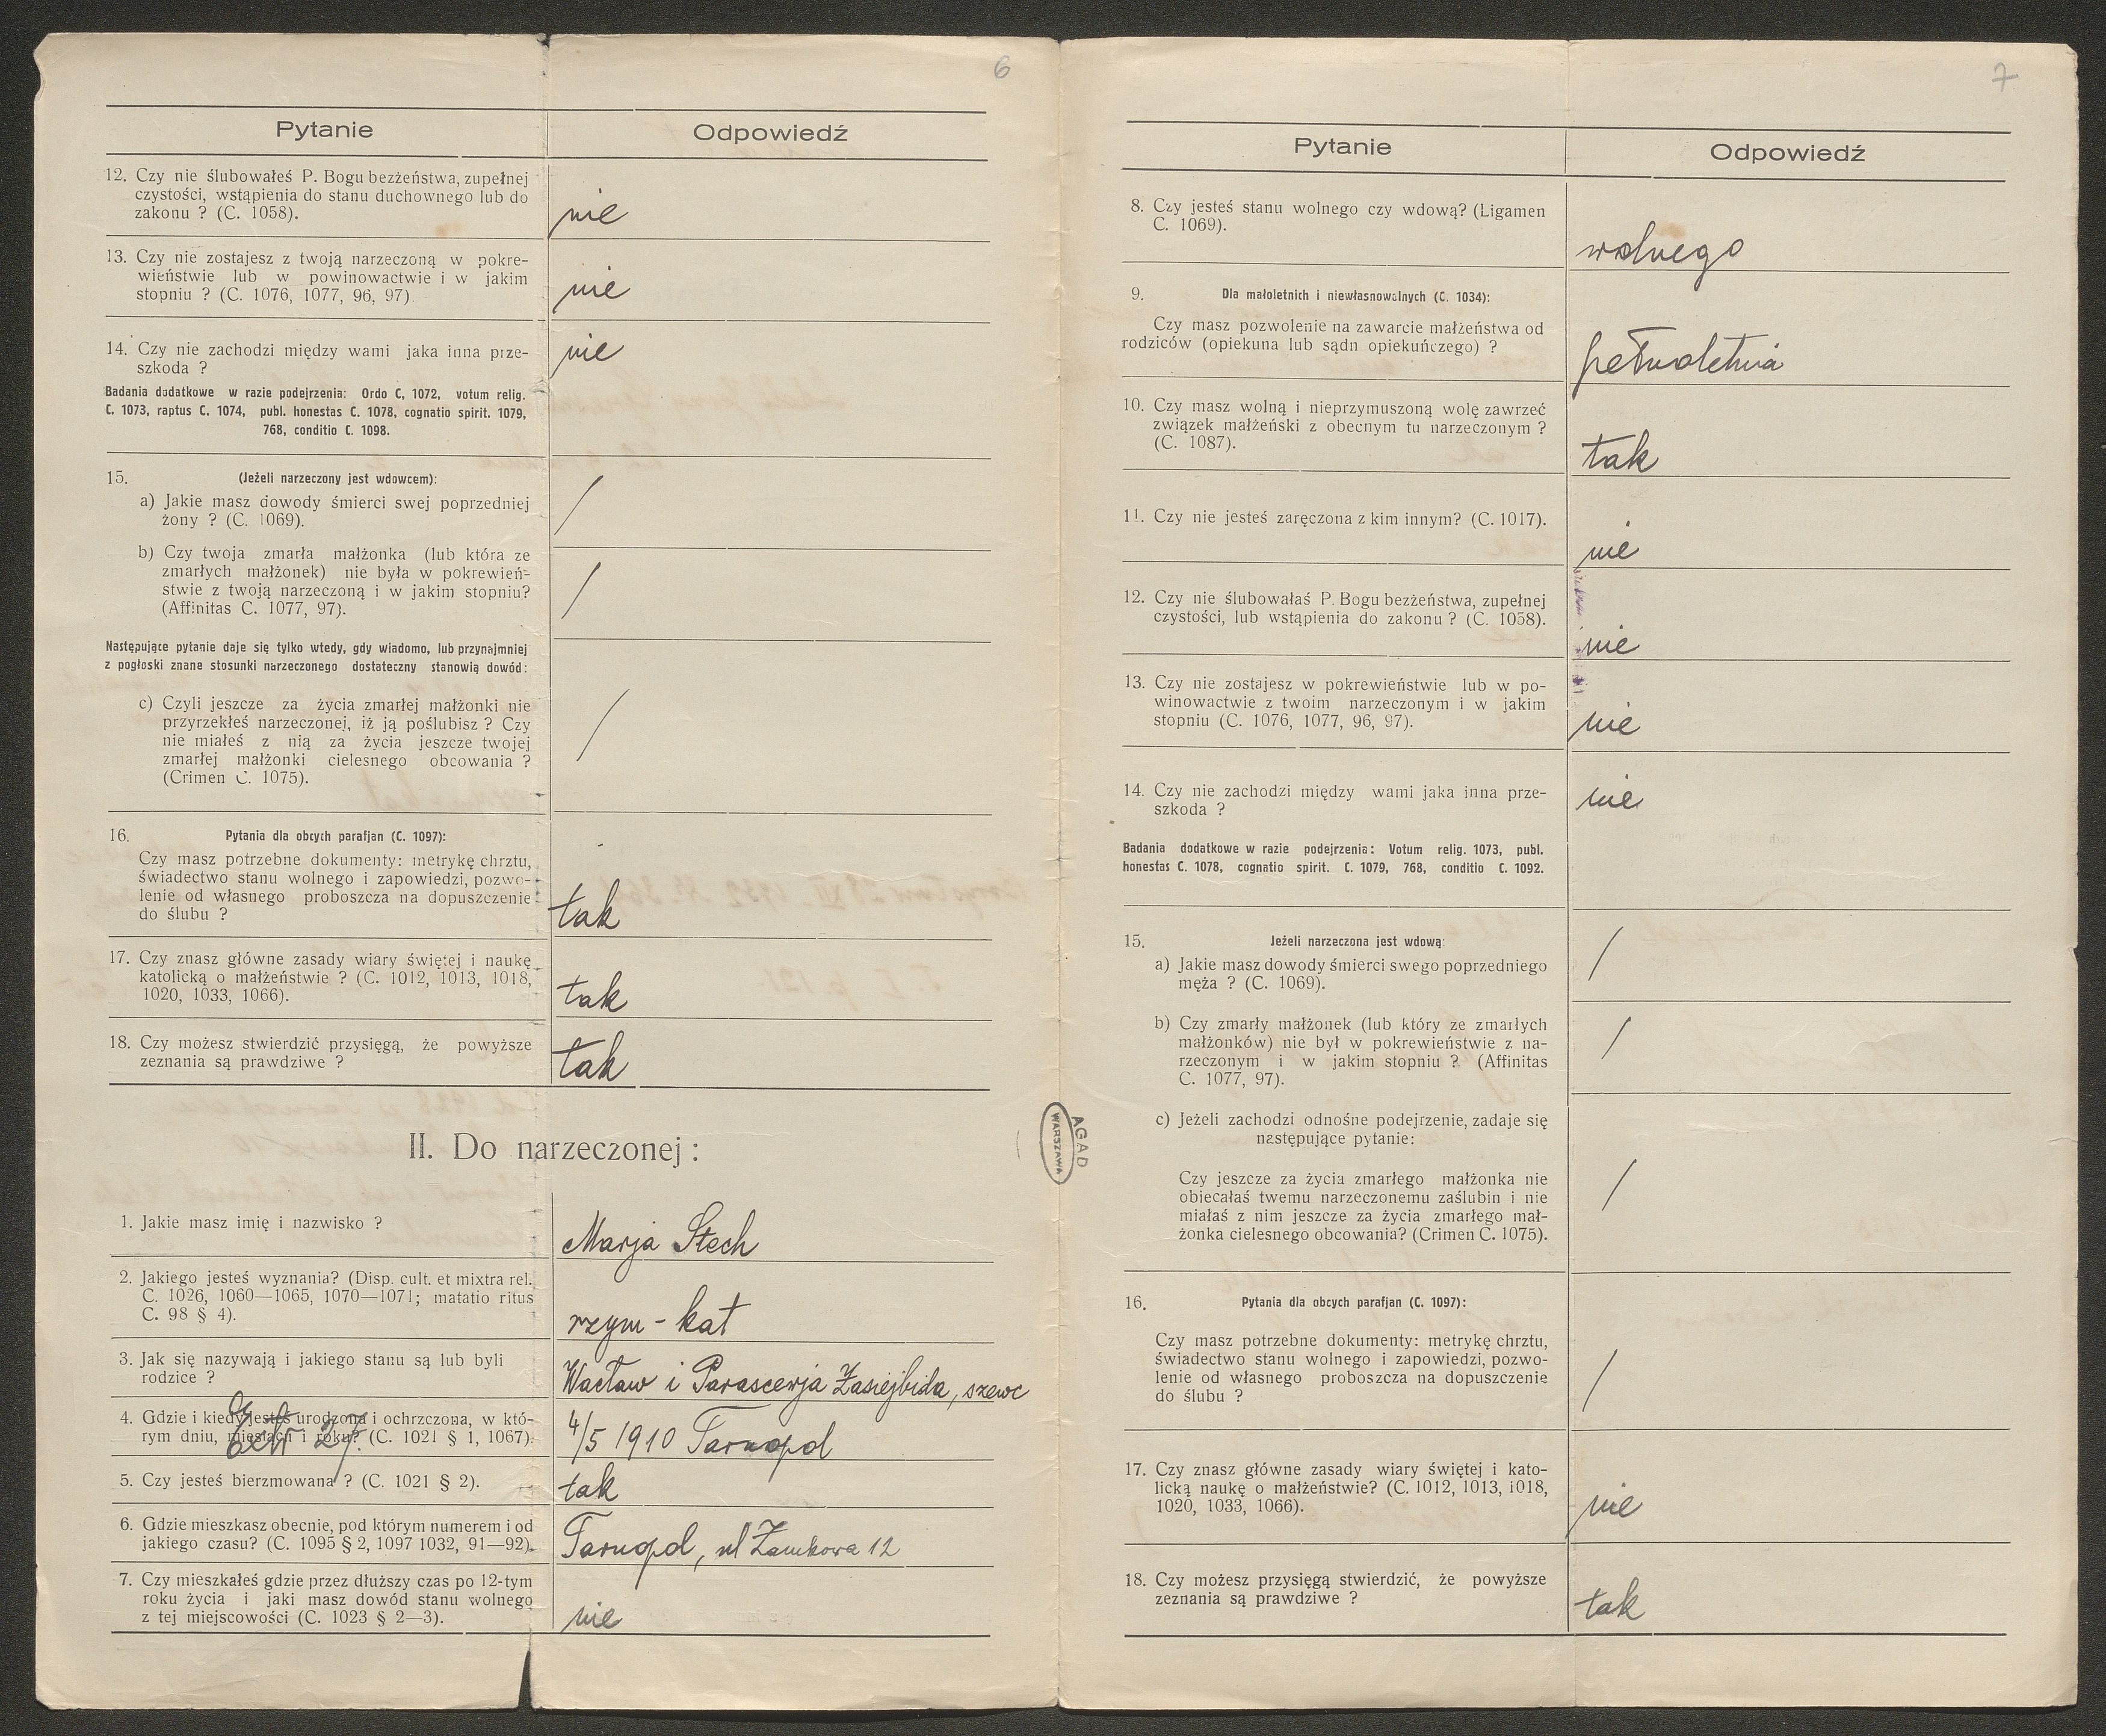 6
Pytanie
Odpowiedź
12. Czy nie ślubowałeś P. Bogu bezżeństwa, zupełnej
czystości, wstąpienia do stanu duchownego lub do
zakonu ? (C. 1058).
nie
13. Czy nie zostajesz z twoją narzeczoną w pokre-
wieństwie lub w powinowactwie i w jakim
stopniu ? (C. 1076, 1077, 96, 97)
nie
14. Czy nie zachodzi między wami jaka inna prze-
szkoda ?
nie
Badania dodatkowe w razie podejrzenia: Ordo C, 1072, votum relig.
C. 1073, raptus C. 1074, publ. honestas C. 1078, cognatio spirit. 1079,
768, conditio C. 1098.
15. (Jeżeli narzeczony jest wdowcem):
a) Jakie masz dowody śmierci swej poprzedniej
żony ? (C. 1069).
/
b) Czy twoja zmarła małżonka (lub która ze
zmarłych małżonek) nie była w pokrewień-
stwie z twoją narzeczoną i w jakim stopniu?
(Affinitas C. 1077, 97).
/
Następujące pytanie daje się tylko wtedy, gdy wiadomo, lub przynajmniej
z pogłoski znane stosunki narzeczonego dostateczny stanowią dowód:
c) Czyli jeszcze za życia zmarłej małżonki nie
przyrzekłeś narzeczonej, iż ją poślubisz ? Czy
nie miałeś z nią za życia jeszcze twojej
zmarłej małżonki cielesnego obcowania ?
(Crimen C. 1075).
/
16. Pytania dla obcych parafjan (C. 1097):
Czy masz potrzebne dokumenty: metrykę chrztu,
świadectwo stanu wolnego i zapowiedzi, pozwo-
lenie od własnego proboszcza na dopuszczenie
do ślubu ?
tak
17. Czy znasz główne zasady wiary świętej i naukę
katolicką o małżeństwie ? (C. 1012, 1013, 1018,
1020, 1033, 1066).
tak
18. Czy możesz stwierdzić przysięgą, że powyższe
zeznania są prawdziwe ?
tak
II. Do narzeczonej :
1. Jakie masz imię i nazwisko ?
Marja Stech
2. Jakiego jesteś wyznania? (Disp. cult. et mixtra rel.
C. 1026, 1060—1065, 1070—1071; matatio ritus
C. 98 § 4).
rzym - kat
3. Jak się nazywają i jakiego stanu są lub byli
rodzice ?
Wacław i Parascewja Zasiejbida, szewc
4. Gdzie i kiedy jesteś urodzona i ochrzczona, w któ-
rym dniu, miesiącu i roku? (C. 1021 § 1, 1067).
27.
4/5 1910 Tarnopol
5. Czy jesteś bierzmowana ? (C. 1021 § 2).
tak
6. Gdzie mieszkasz obecnie, pod którym numerem i od
jakiego czasu? (C. 1095 § 2, 1097 1032, 91—92).
Tarnopol, ul Zamkowa 12
7. Czy mieszkałeś gdzie przez dłuższy czas po 12-tym
roku życia i jaki masz dowód stanu wolnego
z tej miejscowości (C. 1023 § 2—3).
nie
AGAD
WARSZAWA
7
Pytanie
Odpowiedź
8. Czy jesteś stanu wolnego czy wdową? (Ligamen
C. 1069).
wolnego
9. Dla małoletnich i niewłasnowolnych (C. 1034):
Czy masz pozwolenie na zawarcie małżeństwa od
rodziców (opiekuna lub sądn opiekuńczego) ?
pełnoletnia
10. Czy masz wolną i nieprzymuszoną wolę zawrzeć
związek małżeński z obecnym tu narzeczonym ?
(C. 1087).
tak
11. Czy nie jesteś zaręczona z kim innym? (C. 1017).
nie
12. Czy nie ślubowałaś P. Bogu bezżeństwa, zupełnej
czystości, lub wstąpienia do zakonu ? (C. 1058).
nie
13. Czy nie zostajesz w pokrewieństwie lub w po-
winowactwie z twoim narzeczonym i w jakim
stopniu (C. 1076, 1077, 96, 97).
nie
14. Czy nie zachodzi między wami jaka inna prze-
szkoda ?
nie
Badania dodatkowe w razie podejrzenia: Votum relig. 1073, publ.
honestas C. 1078, cognatio spirit. C. 1079, 768, conditio C. 1092.
15. Jeżeli narzeczona jest wdową:
a) Jakie masz dowody śmierci swego poprzedniego
męża ? (C. 1069).
/
b) Czy zmarły małżonek (lub który ze zmarłych
małżonków) nie był w pokrewieństwie z na-
rzeczonym i w jakim stopniu ? (Affinitas
C. 1077, 97).
/
c) Jeżeli zachodzi odnośne podejrzenie, zadaje się
następujące pytanie:
Czy jeszcze za życia zmarłego małżonka nie
obiecałaś twemu narzeczonemu zaślubin i nie
miałaś z nim jeszcze za życia zmarłego mał-
żonka cielesnego obcowania? (Crimen C. 1075).
/
16. Pytania dla obcych parafjan (C. 1097):
Czy masz potrzebne dokumenty: metrykę chrztu,
świadectwo stanu wolnego i zapowiedzi, pozwo-
lenie od własnego proboszcza na dopuszczenie
do ślubu ?
/
17. Czy znasz główne zasady wiary świętej i kato-
licką naukę o małżeństwie? (C. 1012, 1013, 1018,
1020, 1033, 1066).
nie
18. Czy możesz przysięgą stwierdzić, że powyższe
zeznania są prawdziwe ?
tak